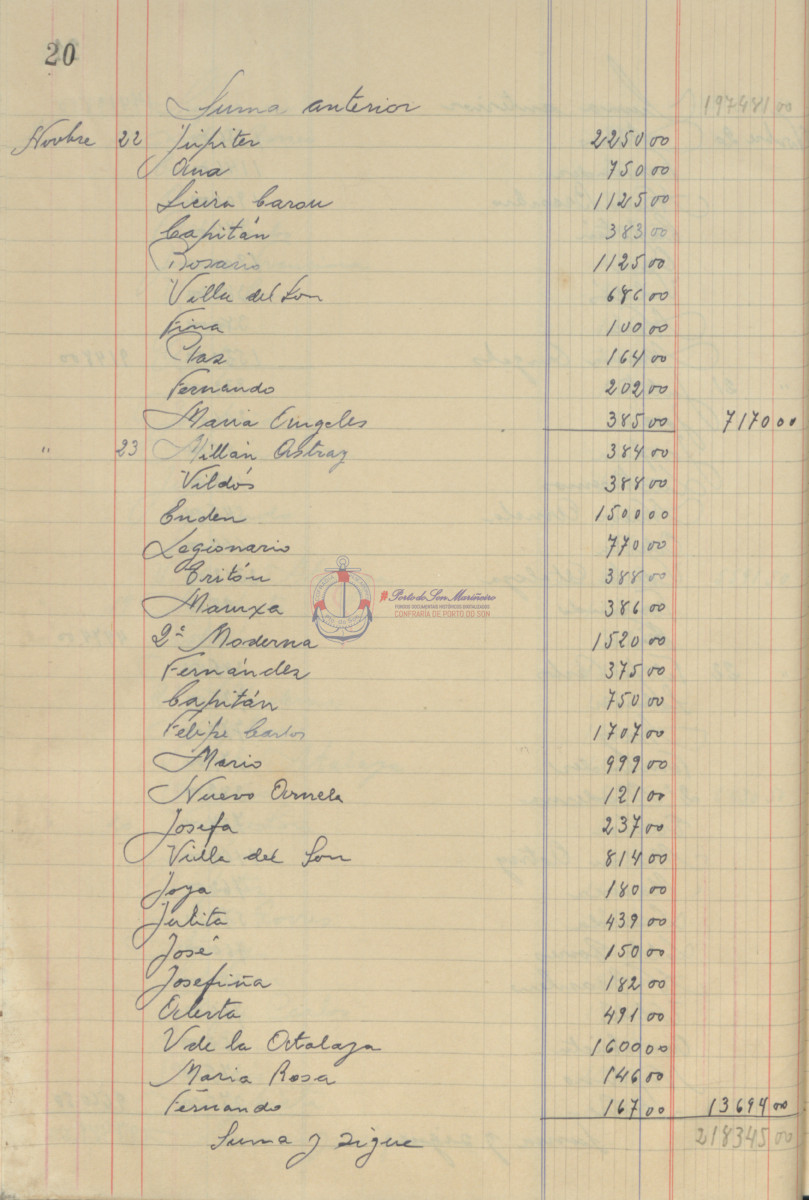 20
Suma anterior 197481 00
Novbre 22 Júpiter 2250 00
Ana 750 00
Licira Carou 1125 00
Capitán 383 00
Rosario 1125 00
Villa del Son 686 00
Fina 100 00
Paz 164 00
Fernando 202 00
Maria Engeles 385 00 7170 00
" 23 Millán Astray 384 00
Vildós 388 00
Enden 1500 00
Legionario 770 00
Tritón 388 00
Maruxa 386 00
2ª Moderna 1520 00
Fernández 375 00
Capitán 750 00
Felipe Carlos 1707 00
Mario 999 00
Nuevo Ornela 121 00
Josefa 237 00
Villa del Son 814 00
Joya 180 00
Julita 439 00
José 150 00
Josefiña 182 00
Alerta 491 00
V de la Atalaya 1600 00
Maria Rosa 146 00
Fernando 167 00 13694 00
Suma y sigue 218345 00
Porto do Son Mariñeiro
FONDOS DOCUMENTAIS HISTÓRICOS DIXITALIZADOS
CONFRARÍA DE PORTO DO SON